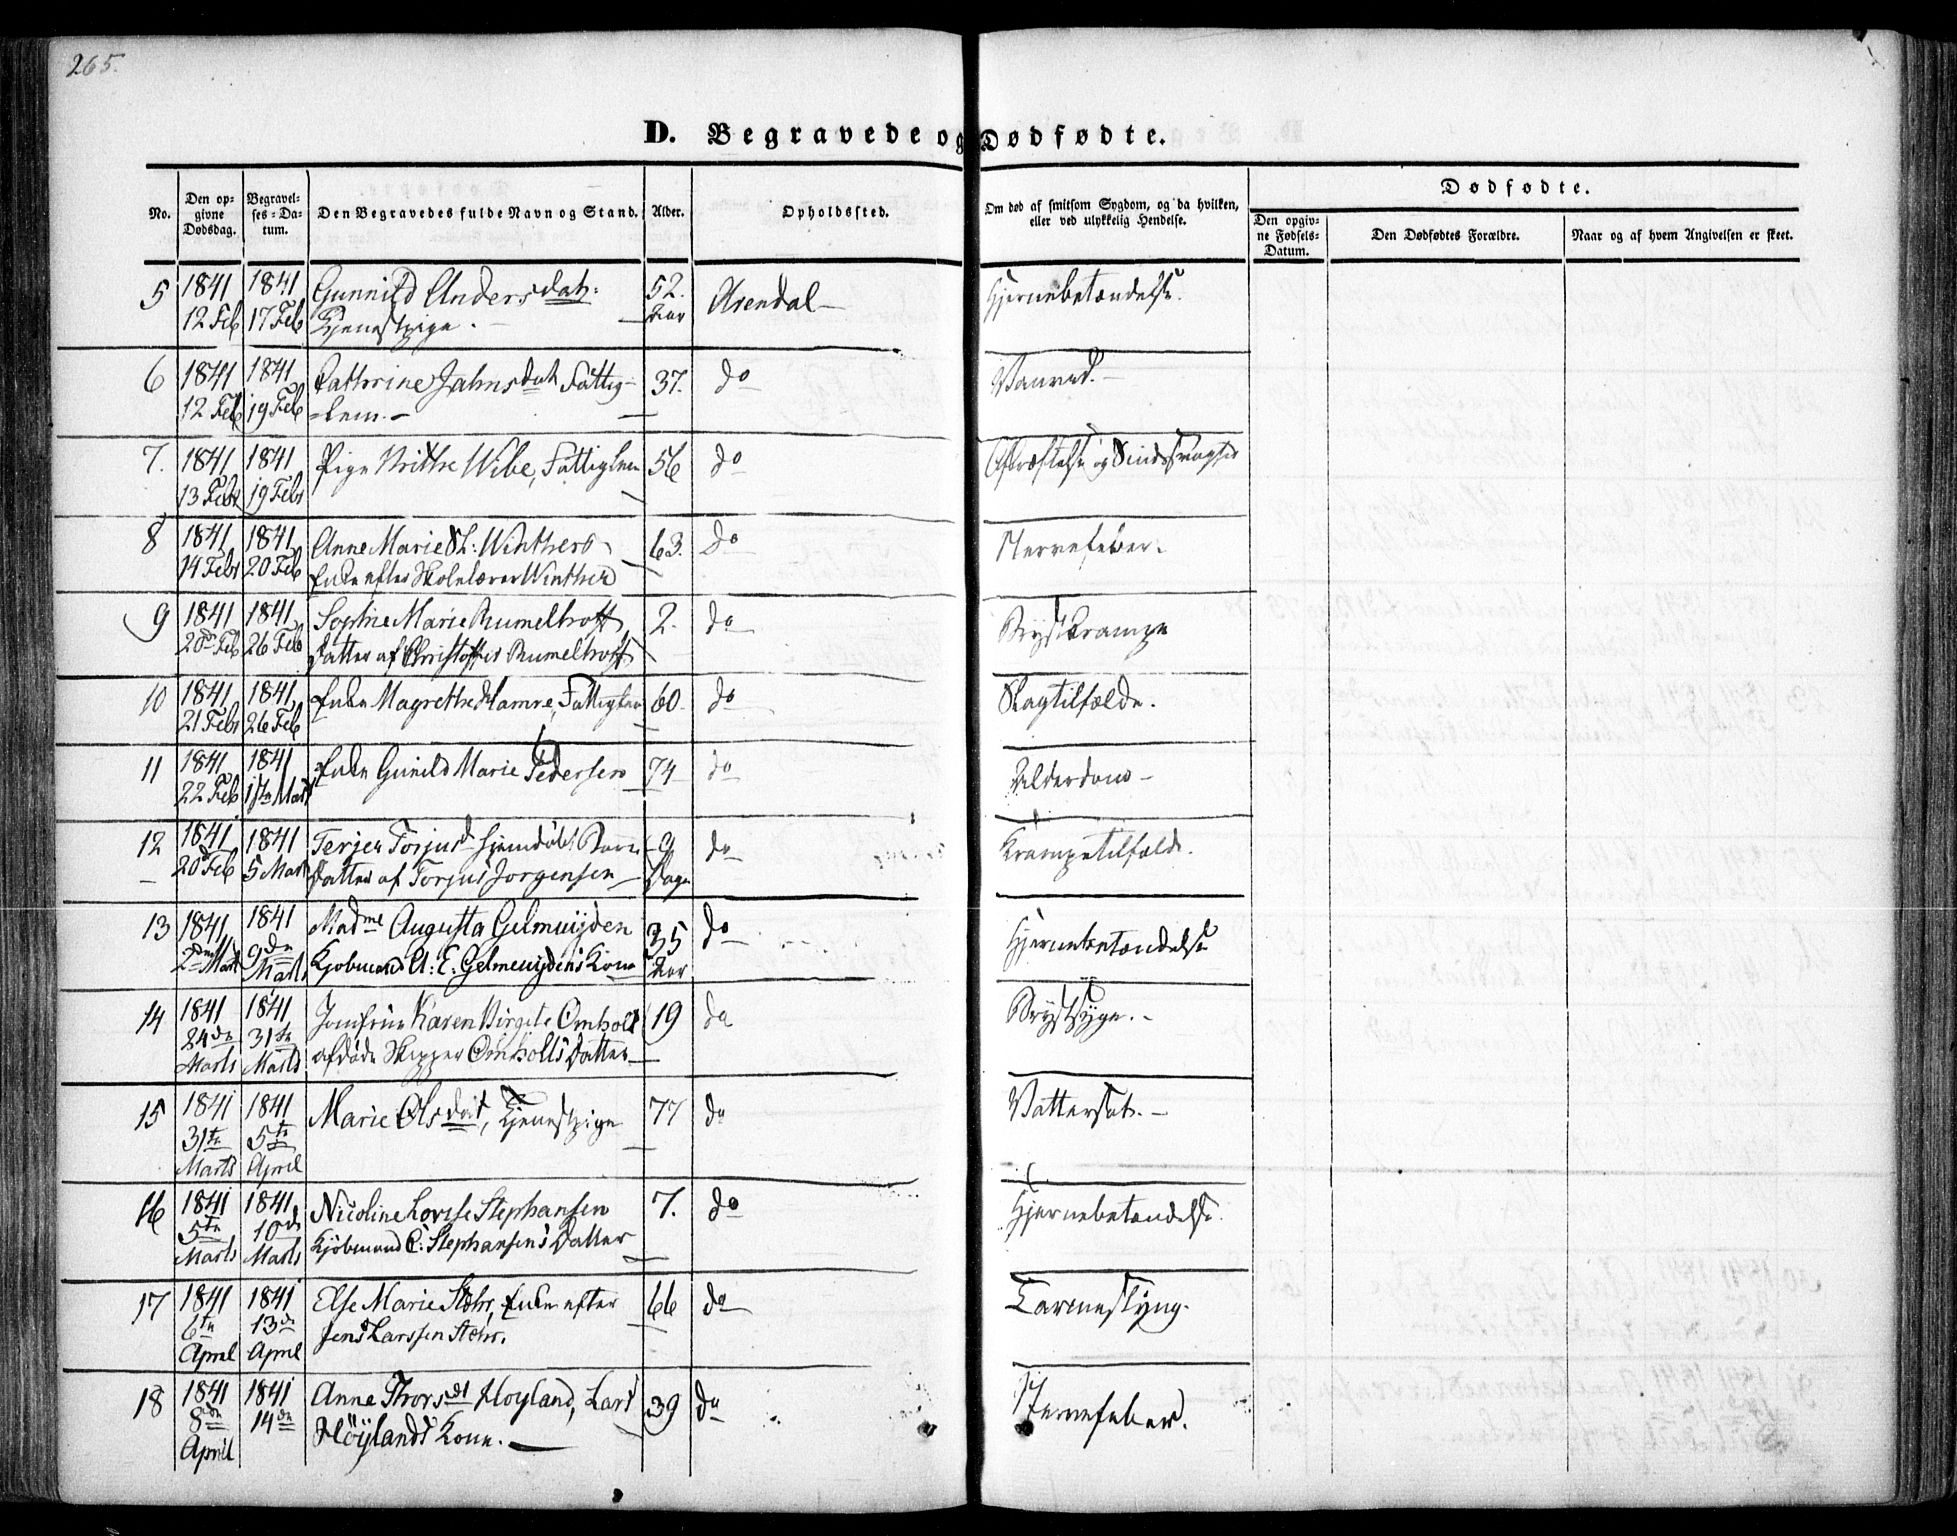 265.
D. Begravede og Dødfødte.
No.
Den opgivne Dødsdag.
Begravelses-Datum.
Den Begravedes fulde Navn og Stand.
Alder.
Opholdssted.
Om død af smitsom Sygdom, og da hvilken, eller ved ulykkelig Hendelse.
Dødfødte.
Den opgivne Fødsels-Datum.
Den Dødfødtes Forældre.
Naar og af hvem Angivelsen er skeet.
5 1841 1841 Gunnild Andersdatr: 52. Arendal Hjernebetændelse.
12 Feb 17 Feb Tjenestpige. Aar
6 1841 1841 Cathrine Jahnsdatr Fattig- 37. do Vanvid.
12 Feb 19 Feb =lem.
7. 1841 1841 Pige Brithe Wibe, Fattiglem 56 do Afkræftelse og Sindssvaghed
13 Febr 19 Febr
8 1841 1841 Anne Marie Winthers 63. do Nervefeber.
14 Febr 20 Feb Enke efter Skolelærer Winther
9 1841 1841 Sophie Marie Rumelhoff 2. do Brystkrampe
20de Feb 26 Feb Datter af Christoffer Rumelhoff
10 1841 1841 Enke Magrethe Hamre, Fattiglem 60 do Slagtilfælde.
21 Febr 26 Feb
11 1841 1841 Enke Gunild Marie Pedersen 74 do Alderdom
22 Feb 1ste Marts
12 1841 1841 Terjer Torjusd hjemdøbt Barn 9 do Krampetilfælde.
20 Feb 5 Marts Datter af Torjus Jorgensen Dage
13 1841 1841 Madme Augusta Gelmuijden 35 do Hjernebetændelse
2den Marts 9de Marts Kjøbmand A: E. Gelmeuijdens Kone Aar
14 1841 1841 Jomfrue Karen Birgite Omholt 19 do Brystsyge.
24de Marts 31te Marts afdøde Skipper Omholts Datter
15 1841 1841 Marie Olsdatt, Tjenestpige 77 do Vattersot.
31te Marts 5te April
16 1841 1841 Nicoline Lovise Stephansen 7. do Hjernebetændelse.
5te Marts 10de Marts Kjøbmand C: Stephansens Datter
17 1841 1841 Else Marie Støhr, Enke efter 66 do
6te April 13de April Jens Larssen Støhr.
18 1841 1841 Anne Thorsdt Hoyland, Lars 39 do Nervefeber.
8de April 14de Höylands Kone.